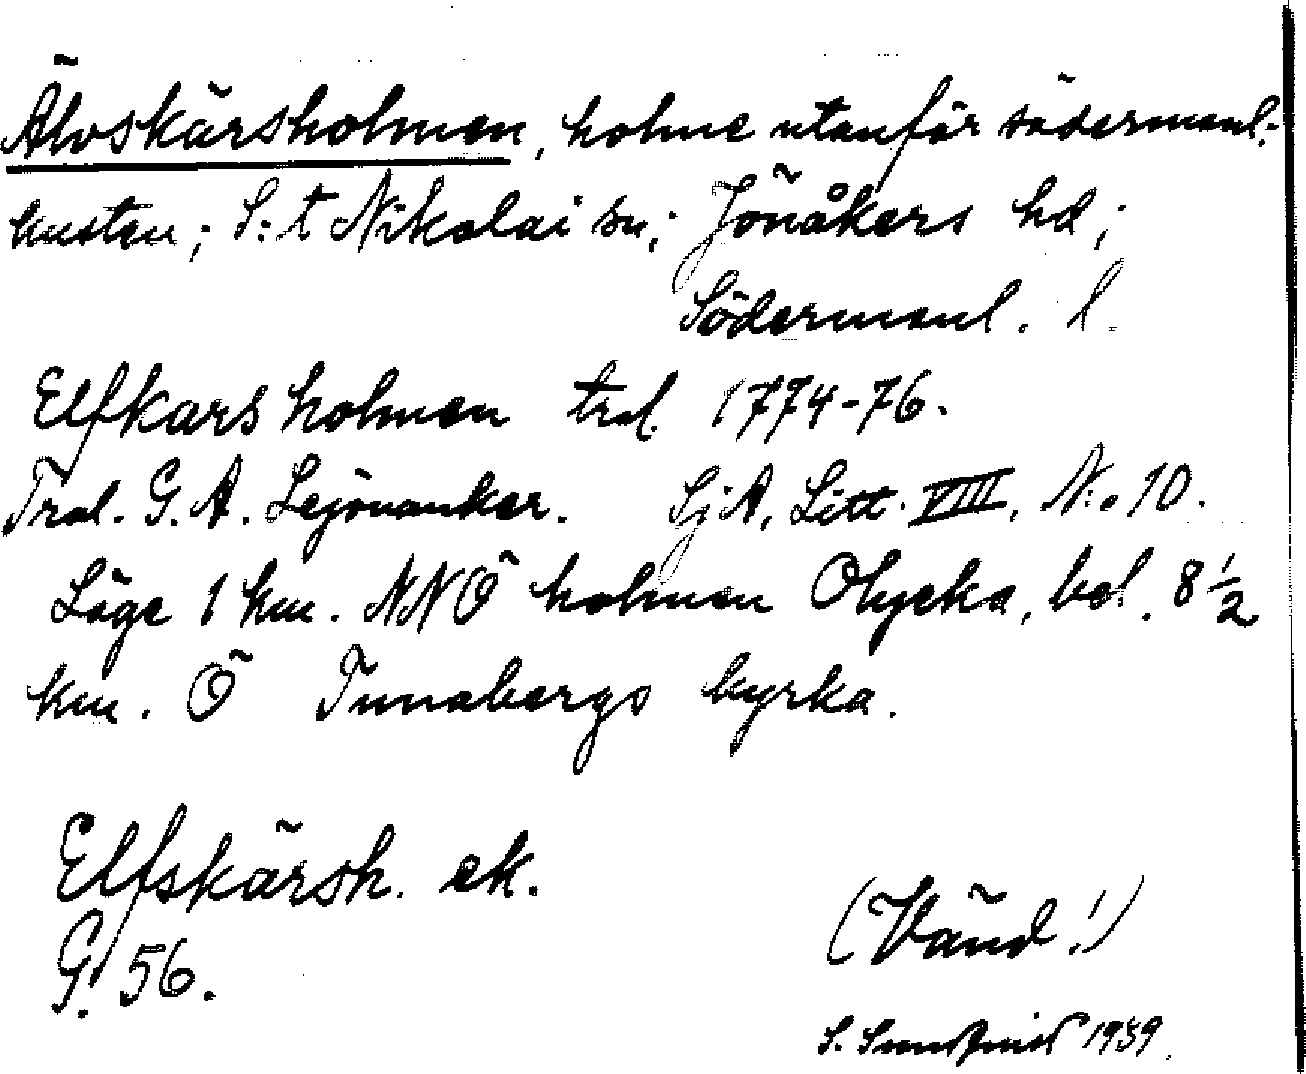 Älvskärsholmen, holme utanför södermanl.-
kusten; S:t Nikolai sn; Jönåkers hd;
Södermanl. l.
Elfkarsholmen trol. 1774-76.
Trol. G. A. Lejonanker. SjA, Litt. VIII, N:o 10.
Läge 1 km. NNÖ holmen Olycka, bel. 8 1/2
km. Ö Tunabergs kyrka.
Elfskärsh. ek.
G! 56.
(Vänd!)
S. Sundquist 1939.